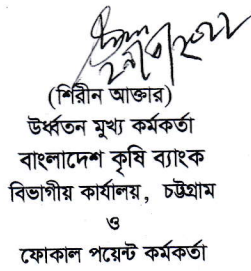 (শিরীন আক্তার)
উর্ধ্বতন মুখ্য কর্মকর্তা
বাংলাদেশ কৃষি ব্যাংক
বিভাগীয় কার্যালয়, চট্টগ্রাম
ও
ফোকাল পয়েন্ট কর্মকর্তা